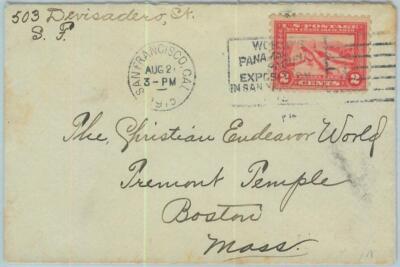 503 Devisadero, St.
S. F.
SAN FRANCISCO, CAL.
AUG 2
3-PM
WO
PANA
EXPOS
IN SAN
U.S. POSTAGE
2 CENTS 2
The Christian Endeavor World
Tremont Temple
Boston
Mass.